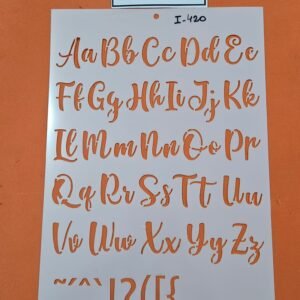 I-420
Aa Bb Cc Dd Ee
Ff Gg Hh Ii Jj Kk
Ll Mm Nn Oo Pp
Qq Rr Ss Tt Uu
Vv Ww Xx Yy Zz
~/^\!?([{